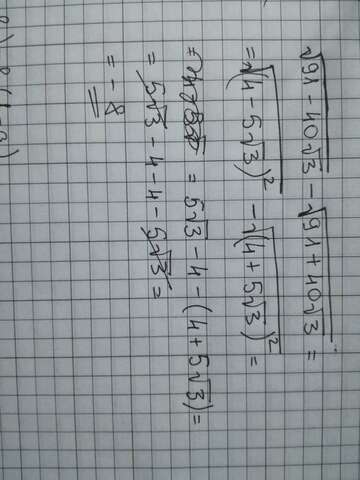 √(91 - 40√3) - √(91 + 40√3) =
= √(4 - 5√3)² - √(4 + 5√3)² =
= 5√3 - 4 - (4 + 5√3) =
= 5√3 - 4 - 4 - 5√3 =
= -8